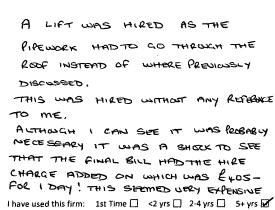 A LIFT WAS HIRED AS THE
PIPEWORK HAD TO GO THROUGH THE
ROOF INSTEAD OF WHERE PREVIOUSLY
DISCUSSED.
THIS WAS HIRED WITHOUT ANY REFERENCE
TO ME.
ALTHOUGH I CAN SEE IT WAS PROBABLY
NECESSARY IT WAS A SHOCK TO SEE
THAT THE FINAL BILL HAD THE HIRE
CHARGE ADDED ON WHICH WAS £405-
FOR 1 DAY! THIS SEEMED VERY EXPENSIVE
I have used this firm: 1st Time ☐ <2 yrs ☐ 2-4 yrs ☐ 5+ yrs ☑